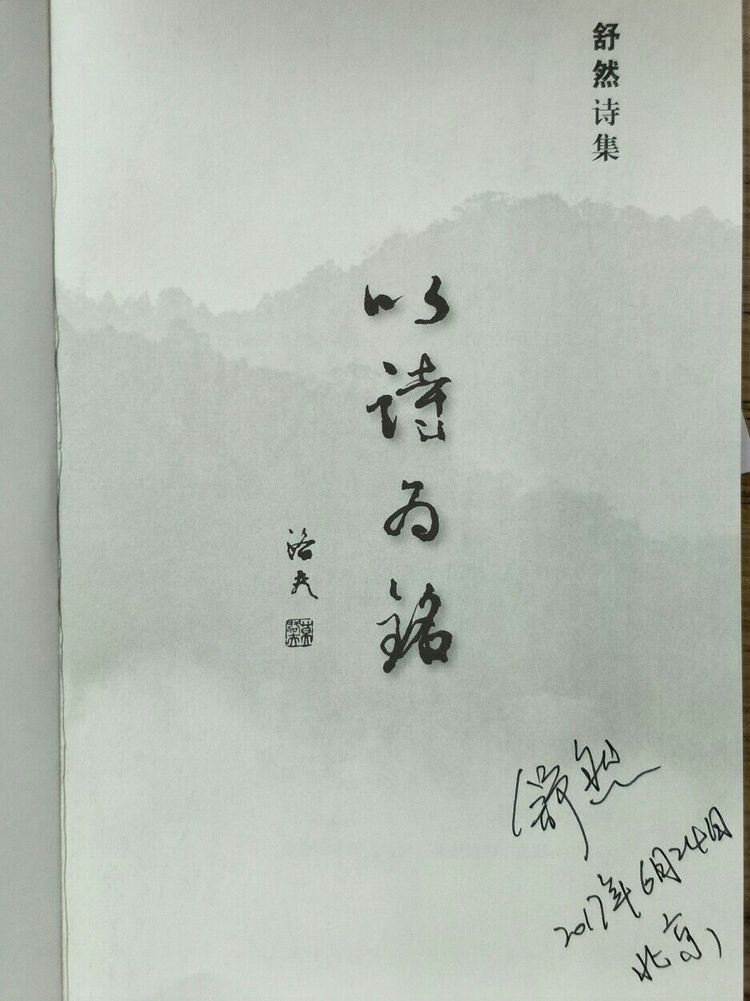 舒然诗集
以詩为銘
洛夫
舒然
2017年6月24日
北京